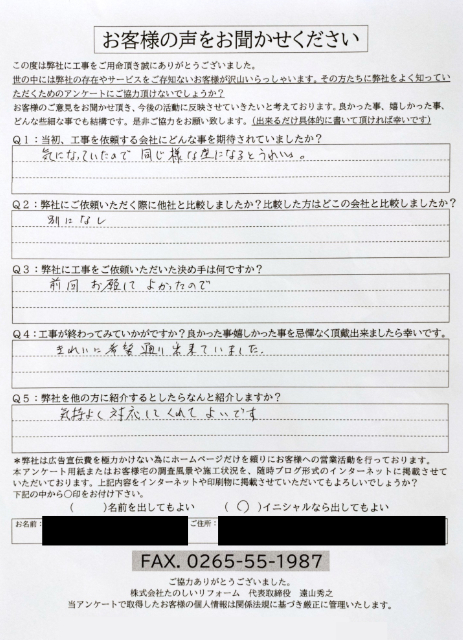 お客様の声をお聞かせください
この度は弊社に工事をご用命頂き誠にありがとうございました。
世の中には弊社の存在やサービスをご存知ないお客様が沢山いらっしゃいます。その方たちに弊社をよく知っていただくためのアンケートにご協力頂けないでしょうか?
お客様のご意見をお聞かせ頂き、今後の活動に反映させていきたいと考えております。良かった事、嬉しかった事、
どんな些細な事でも結構です。是非ご協力をお願い致します。(出来るだけ具体的に書いて頂ければ幸いです)
Q1:当初、工事を依頼する会社にどんな事を期待されていましたか?
気になっていたので 同じ様な型になるとうれしい。
Q2:弊社にご依頼いただく際に他社と比較しましたか?比較した方はどこの会社と比較しましたか?
別になし
Q3:弊社に工事をご依頼いただいた決め手は何ですか?
前回 お願して よかったので
Q4:工事が終わってみていかがですか?良かった事・嬉しかった事を忌憚なく頂戴出来ましたら幸いです。
きれいに希望通り出来ていました.
Q5:弊社を他の方に紹介するとしたらなんと紹介しますか?
気持よく対応してくれてよいです
*弊社は広告宣伝費を極力かけない為にホームページだけを頼りにお客様への営業活動を行っております。
本アンケート用紙またはお客様宅の調査風景や施工状況を、随時ブログ形式のインターネットに掲載させていただいております。上記内容をインターネットや印刷物に掲載させていただいてもよろしいでしょうか?
下記の中から〇印をお付け下さい。
( )名前を出してもよい (〇)イニシャルなら出してもよい
お名前: ご住所:
FAX. 0265-55-1987
ご協力ありがとうございました。
株式会社たのしいリフォーム 代表取締役 遠山秀之
当アンケートで取得したお客様の個人情報は関係法規に基づき厳正に管理いたします。